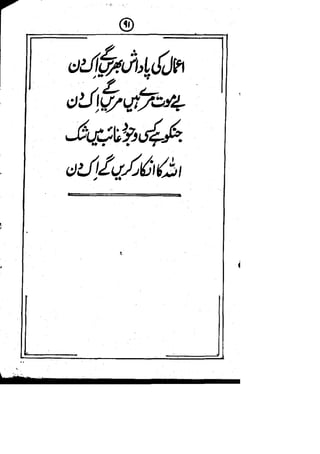 ۹۱
اعمال کی پاداش بھریں گے اِک دن
بے موت مرے ہیں مریں گے اِک دن
جنکو ہے کسی وجودِ غائب میں شک
اللہ کا انکار کریں گے اِک دن